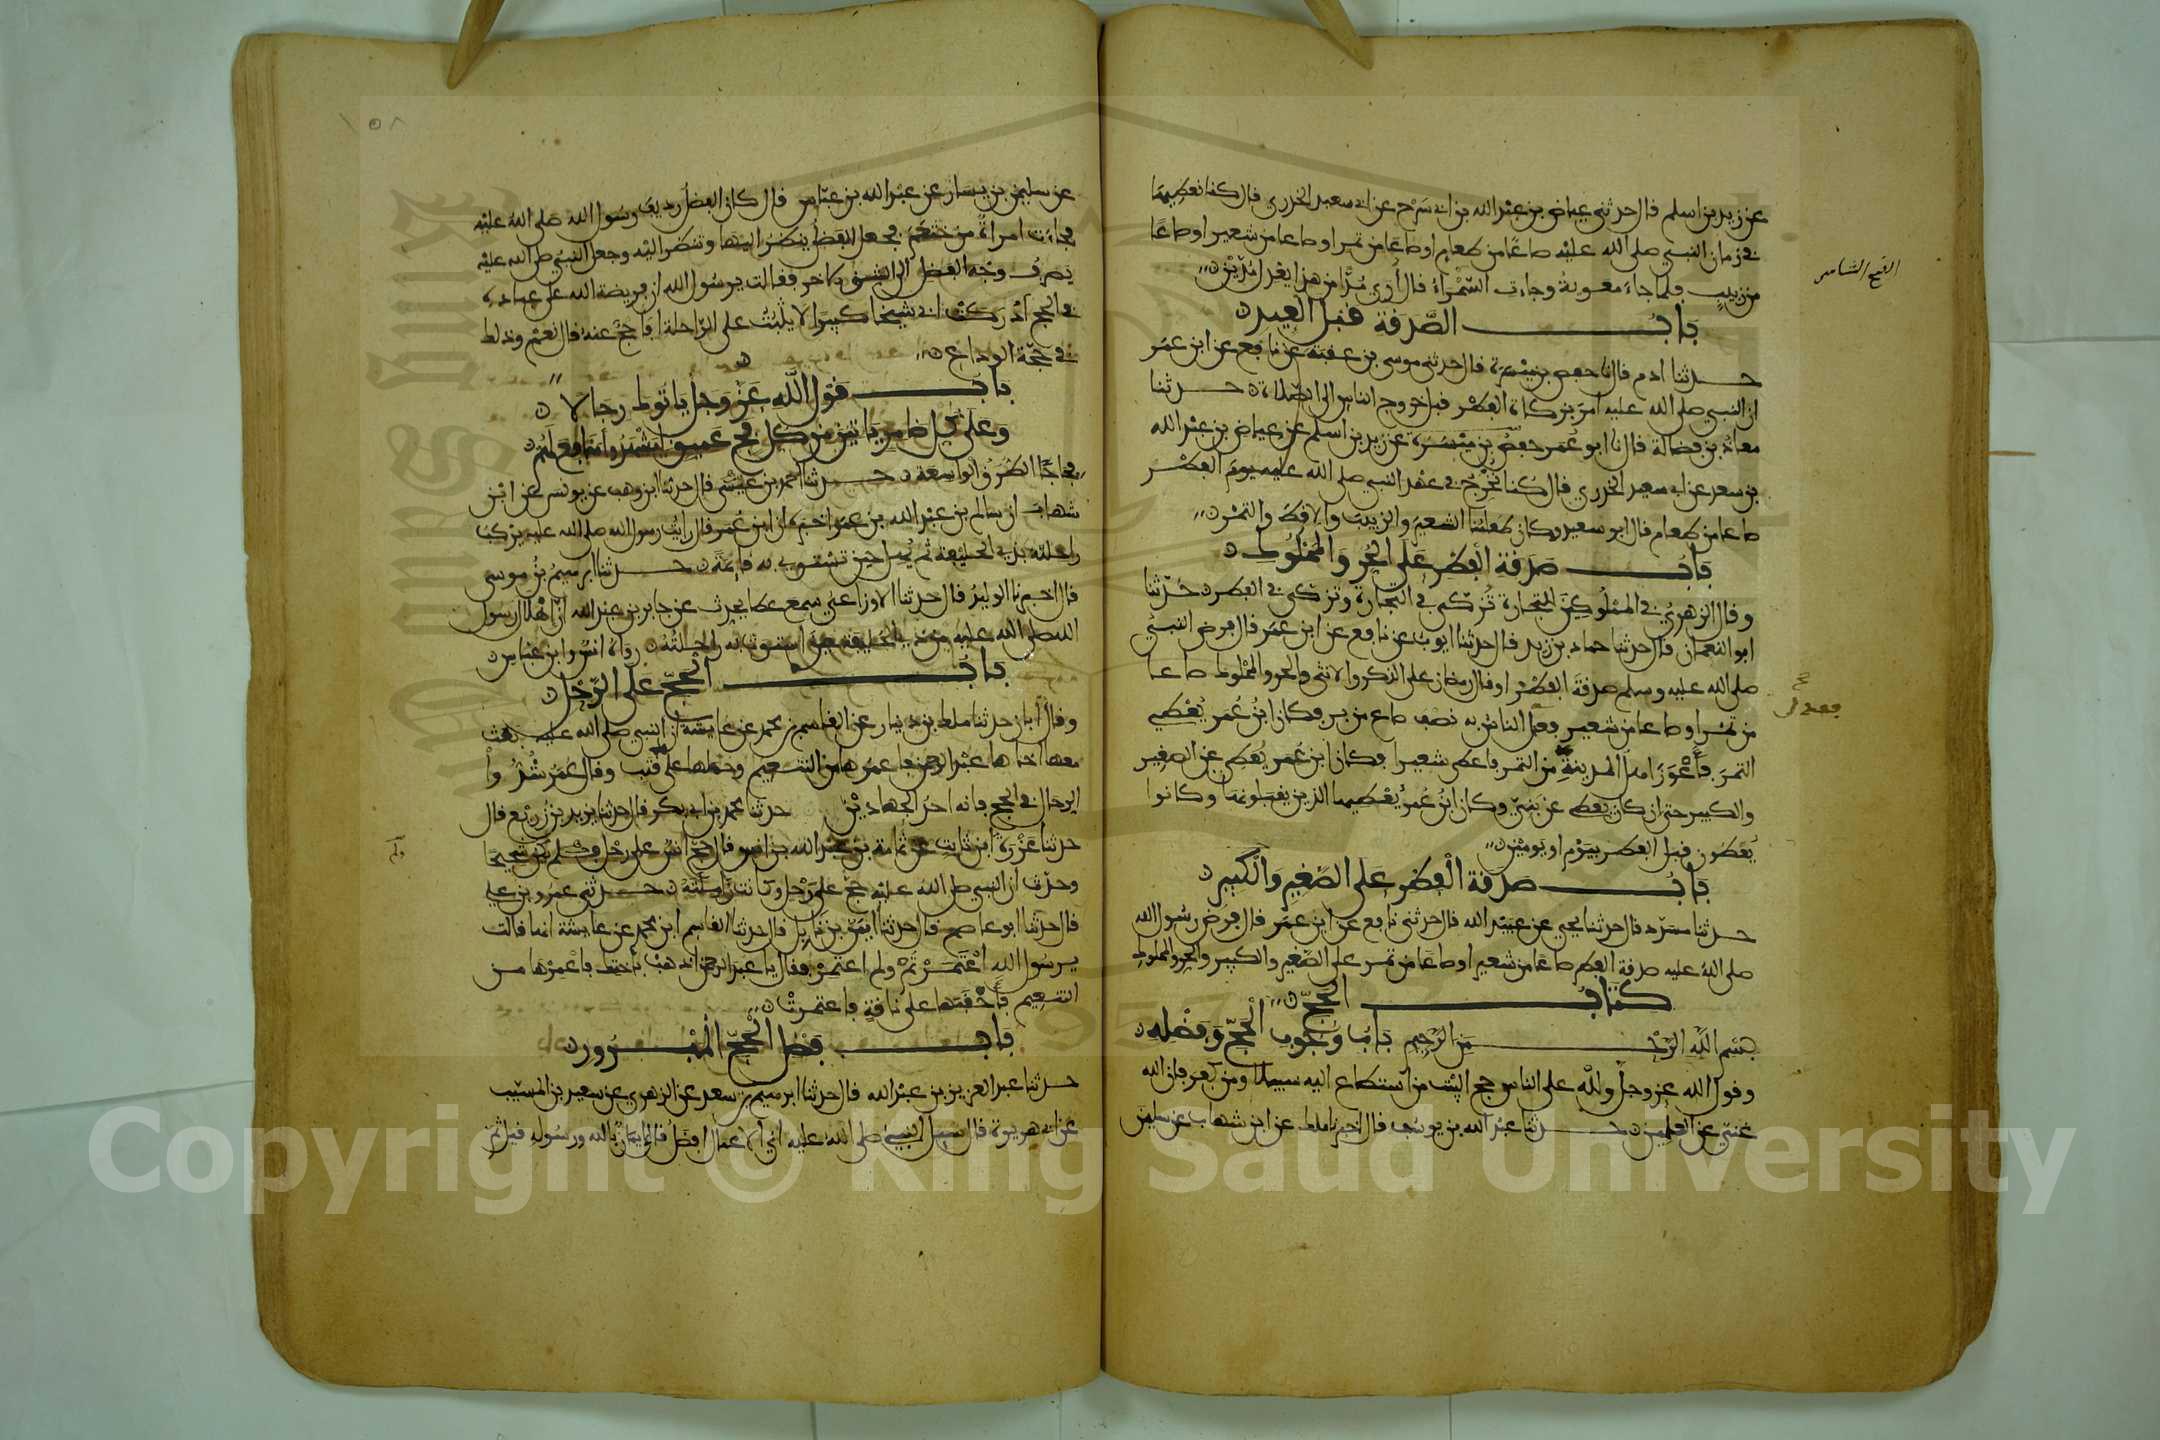 عن زيد بن اسلم قال حدثني عياض بن عبد الله بن ابي سرح عن ابي سعيد الخدري قال كنا نعطيها
في زمان النبي صلى الله عليه صاعا من طعام او صاعا من تمر او صاعا من شعير او صاعا
من زبيب فلما جاء معوية وجاءت السمراء قال أرى مدا من هذا يعدل مدين
باب الصدقة قبل العيد
حدثنا ادم قال نا حفص بن ميسرة قال حدثني موسى بن عقبة عن نافع عن ابن عمر
ان النبي صلى الله عليه امر بزكاة الفطر قبل خروج الناس الى الصلاة حدثنا
معاذ بن فضالة قال نا ابو عمر حفص بن ميسرة عن زيد بن اسلم عن عياض بن عبد الله
بن سعد عن ابي سعيد الخدري قال كنا نخرج في عهد النبي صلى الله عليه يوم الفطر
صاعا من طعام قال ابو سعيد وكان طعامنا الشعير والزبيب والاقط والتمر
باب صدقة الفطر على الحر والمملوك
وقال الزهري في المملوكين للتجارة تزكى في التجارة وتزكى في الفطر حدثنا
ابو النعمان قال حدثنا حماد بن زيد قال حدثنا ايوب عن نافع عن ابن عمر قال فرض النبي
صلى الله عليه وسلم صدقة الفطر او قال رمضان على الذكر والانثى والحر والمملوك صاعا
من تمر او صاعا من شعير فعدل الناس به نصف صاع من بر فكان ابن عمر يعطي
التمر فأعوز اهل المدينة من التمر فاعطى شعيرا فكان ابن عمر يعطي عن الصغير
والكبير حتى ان كان يعطي عن بني وكان ابن عمر يعطيها الذين يقبلونها وكانوا
يعطون قبل الفطر بيوم او يومين
باب صدقة الفطر على الصغير والكبير
حدثنا مسدد قال حدثنا يحيى عن عبيد الله قال حدثني نافع عن ابن عمر قال فرض رسول الله
صلى الله عليه صدقة الفطر صاعا من شعير او صاعا من تمر على الصغير والكبير والحر والمملوك
كتاب الحج
بسم الله الرحمن الرحيم باب وجوب الحج وفضله
وقول الله عز وجل ولله على الناس حج البيت من استطاع اليه سبيلا ومن كفر فان الله
غني عن العلمين حدثنا عبد الله بن يوسف قال اخبرنا ملك عن ابن شهاب عن سليمن
١٥٨
عن سليمن بن يسار عن عبد الله بن عباس قال كان الفضل رديف رسول الله صلى الله عليه
فجاءت امراة من خثعم فجعل الفضل ينظر اليها وتنظر اليه وجعل النبي صلى الله عليه
يصرف وجه الفضل الى الشق الاخر فقالت يرسول الله ان فريضة الله على عباده
في الحج ادركت ابي شيخا كبيرا لا يثبت على الراحلة افاحج عنه قال نعم وذلك
في حجة الوداع
باب قول الله عز وجل ياتوك رجالا
وعلى كل ضامر ياتين من كل فج عميق ليشهدوا منافع لهم
فجاجا الطرق الواسعة حدثنا احمد بن عيسى قال حدثنا ابن وهب عن يونس عن ابن
شهاب ان سالم بن عبد الله بن عمر اخبره ان ابن عمر قال رايت رسول الله صلى الله عليه يركب
راحلته بذي الحليفة ثم يهل حين تستوي به قائمة حدثنا ابرهيم بن موسى
قال اخبرنا الوليد قال حدثنا الاوزاعي سمع عطا يحدث عن جابر بن عبد الله ان اهلال رسول
الله صلى الله عليه من ذي الحليفة حين استوت به راحلته رواه انس وابن عباس
باب الحج على الرحل
وقال أبان حدثنا ملك بن دينار عن القاسم بن محمد عن عايشة ان النبي صلى الله عليه بعث
معها اخاها عبد الرحمن فاعمرها من التنعيم وحملها على قتب وقال عمر شدوا
الرحال في الحج فانه احد الجهادين حدثنا محمد بن ابي بكر قال حدثنا يزيد بن زريع قال
حدثنا عزرة ابن ثابت عن ثمامة بن عبد الله بن انس قال حج انس على رحل ولم يكن شحيحا
وحدث ان النبي صلى الله عليه حج على رحل وكانت زاملته حدثني عمرو بن علي
قال حدثنا ابو عاصم قال حدثنا ايمن بن نابل قال حدثنا القاسم ابن محمد عن عايشة انها قالت
يرسول الله اعتمرتم ولم اعتمر فقال يا عبد الرحمن اذهب باختك فاعمرها من
التنعيم فأحقبها على ناقة فاعتمرت
باب فضل الحج المبرور
حدثنا عبد العزيز بن عبد الله قال حدثنا ابرهيم بن سعد عن الزهري عن سعيد بن المسيب
عن ابي هريرة قال سيل النبي صلى الله عليه اي الاعمال افضل قال إيمان بالله ورسوله قيل ثم